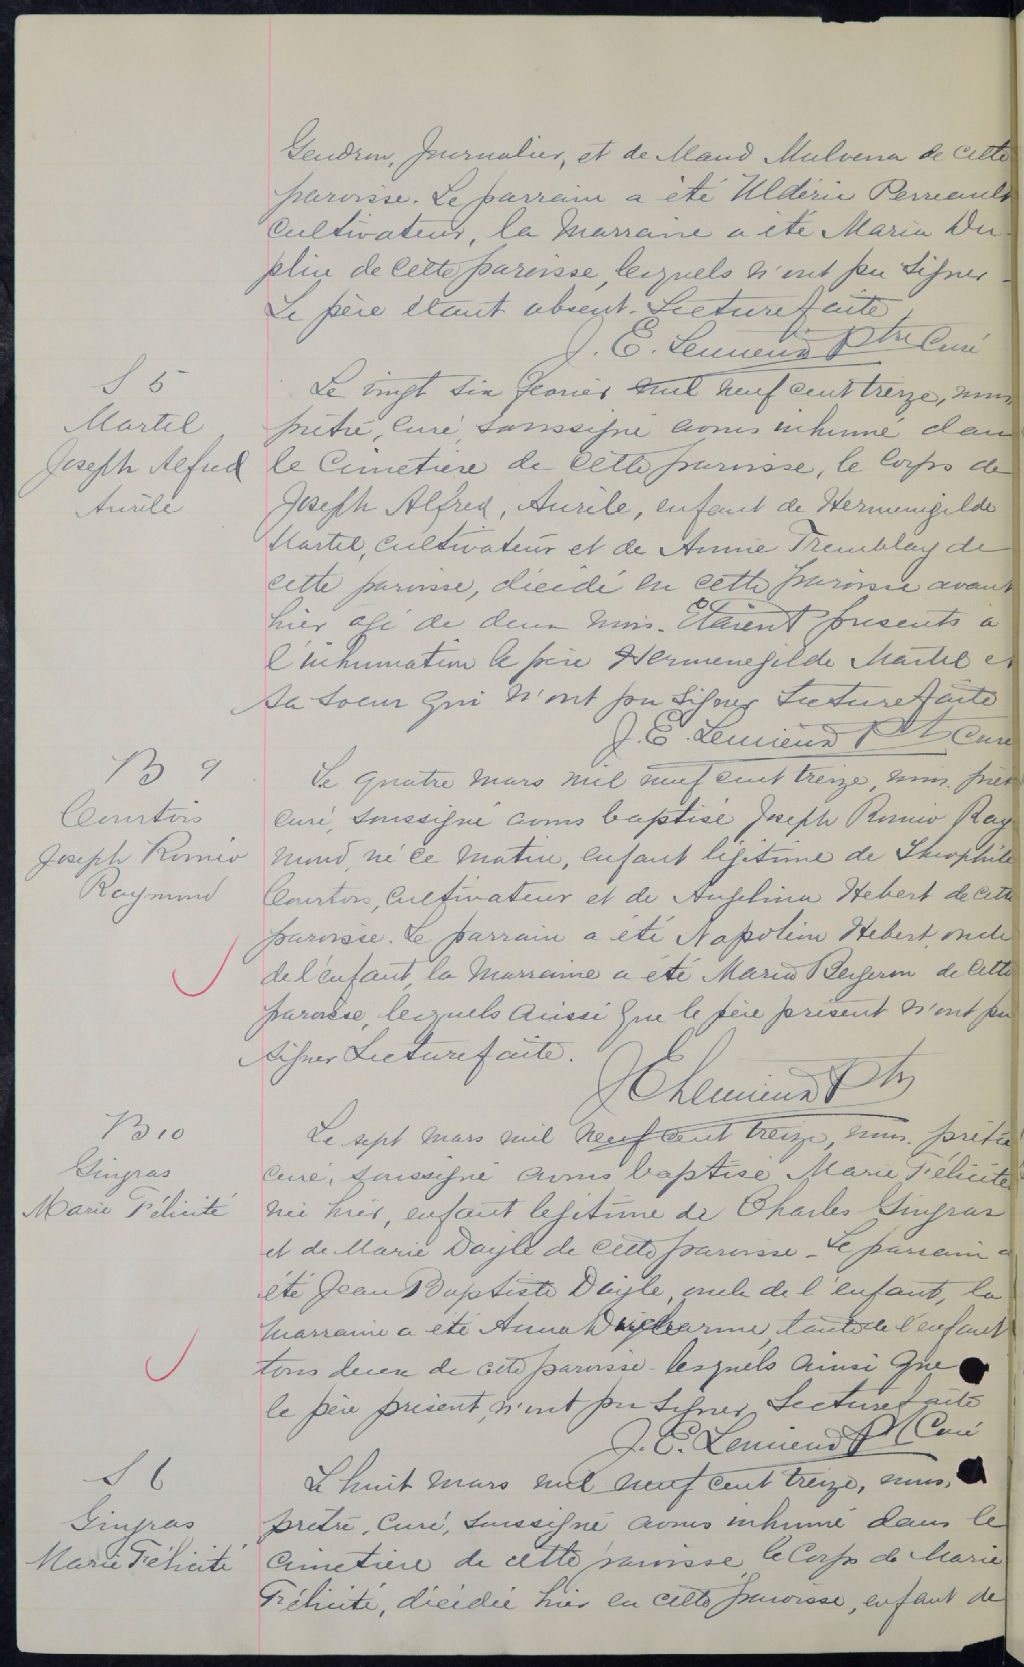 Gendron, Journalier, et de Maud Mulvena de cette
paroisse. Le parrain a été Uldéric Perreault
Cultivateur, la Marraine a été Maria Du-
plin de cette paroisse, lesquels n'ont pu signer
Le père étant absent. Lecture faite
J. E. Lemieux Ptre Curé
S 5
Martel
Joseph Alfred
Aurèle
Le vingt six février mil neuf cent treize, nous
prêtre, curé, soussigné avons inhumé dans
le Cimetière de cette paroisse, le Corps de
Joseph Alfred, Aurèle, enfant de Herménigilde
Martel, Cultivateur et de Annie Tremblay de
cette paroisse, décédé en cette paroisse avant
hier âgé de deux mois. Etaient présents à
l'inhumation le père Hermenegilde Martel et
sa soeur qui n'ont pu signer Lecture faite
J. E. Lemieux Pt Curé
B 9
Courtois
Joseph Roméo
Raymond
Le quatre mars mil neuf cent treize, nous prêt
curé, soussigné avons baptisé Joseph Roméo Ray
mond, né ce matin, enfant légitime de Théophile
Courtois, Cultivateur et de Angelina Hebert de cette
paroisse. Le parrain a été Napoléon Hebert oncle
de l'enfant, la Marraine a été Maria Bergeron de cette
paroisse, lesquels ainsi que le père présent n'ont pu
signer Lecture faite.
J E Lemieux Ptr
B 10
Gingras
Marie Félicité
Le sept mars mil neuf cent treize, nous prêtre
curé, soussigné avons baptisé Marie Félicité
née hier, enfant legitime de Charles Gingras
et de Marie Daigle de cette paroisse - Le parrain a
été Jean Baptiste Daigle, oncle de l'enfant, la
marraine a été Anna tante de l'enfant
tous deux de cette paroisse - lesquels ainsi que
le père présent, n'ont pu signer Lecture faite
J. E. Lemieux Pt Curé
S 6
Gingras
Marie Félicité
Le huit mars mil neuf cent treize, nous,
prêtre, Curé, soussigné avons inhumé dans le
cimetière de cette paroisse le Corps de Marie
Félicité, décédée hier en cette paroisse, enfant de